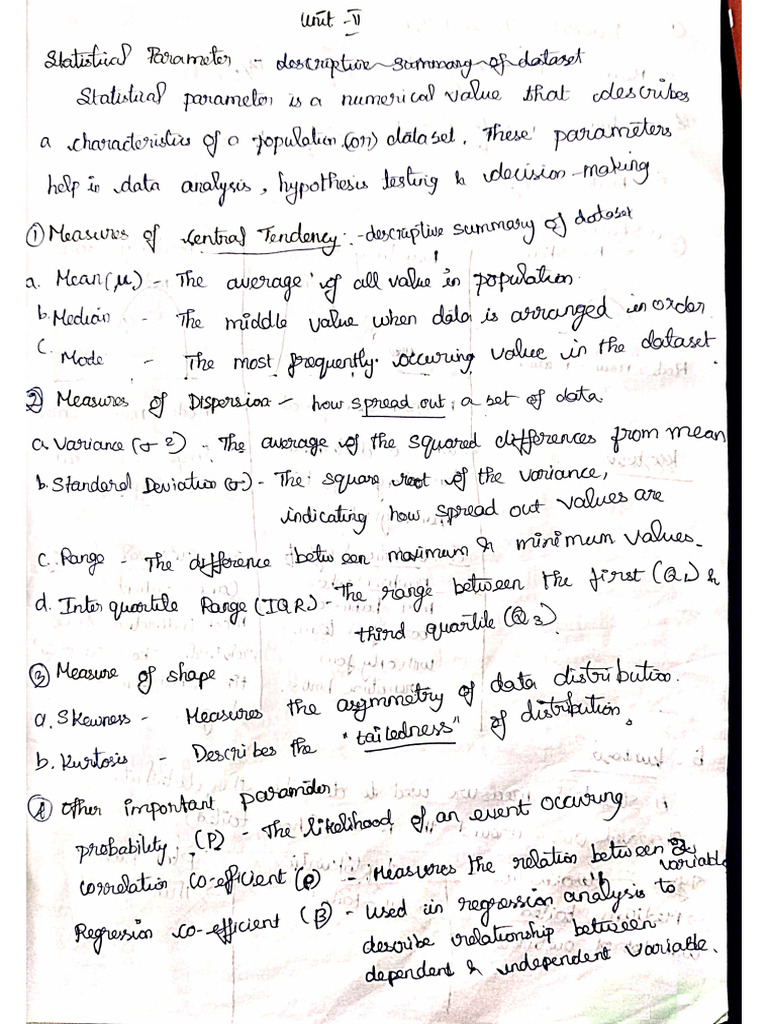 Unit - V
Statistical Parameter - descriptive summary of dataset
Statistical parameter is a numerical value that describes
a characteristics of a population (or) dataset. These parameters
help in data analysis, hypothesis testing & decision-making
① Measures of Central Tendency - descriptive summary of dataset
a. Mean (μ) - The average of all value in population
b. Median - The middle value when data is arranged in order
c. Mode - The most frequently occuring value in the dataset
② Measures of Dispersion - how spread out a set of data
a. Variance (σ2) - The average of the squared differences from mean
b. Standard Deviation (σ) - The square root of the variance,
indicating how spread out values are
c. Range - The difference between maximum & minimum values.
d. Inter quartile Range (IQR) - The range between the first (Q1) &
third quartile (Q3)
③ Measure of shape
a. Skewness - Measures the asymmetry of data distribution.
b. Kurtosis - Describes the "tailedness" of distribution.
④ Other important parameter
probability (P) - The likelihood of an event occuring
correlation co-efficient (ρ) - Measures the relation between 2 variable
Regression co-efficient (β) - Used in regression analysis to
describe relationship between
dependent & independent variable.